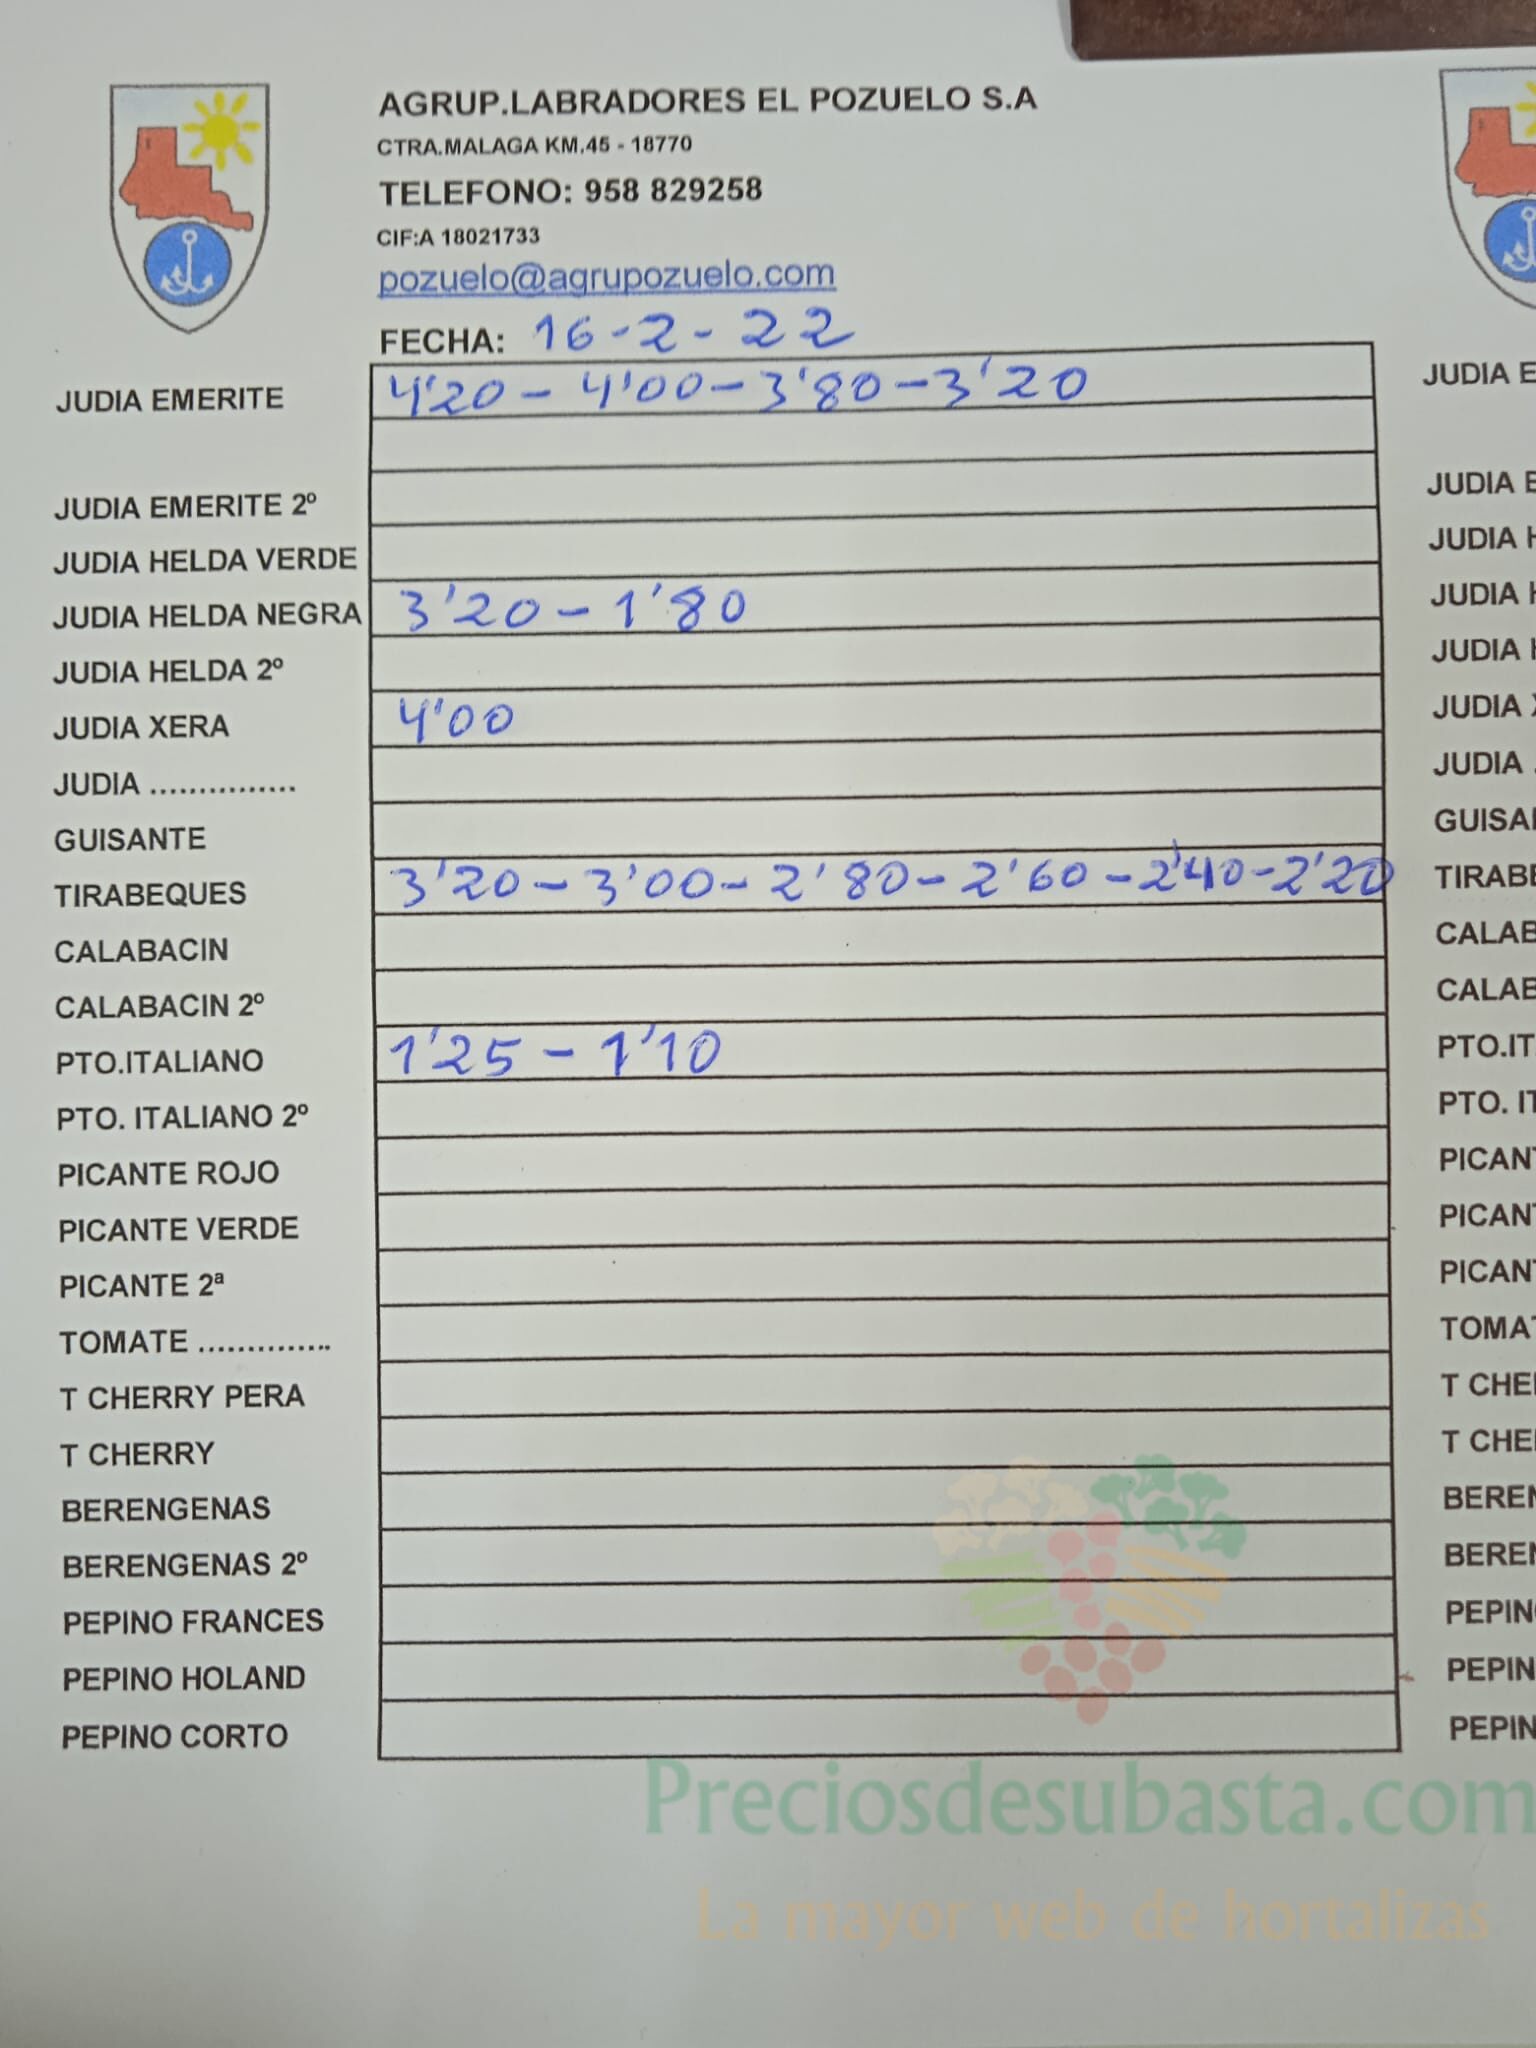 AGRUP.LABRADORES EL POZUELO S.A
CTRA.MALAGA KM.45 - 18770
TELEFONO: 958 829258
CIF:A 18021733
pozuelo@agrupozuelo.com
FECHA: 16-2-22
JUDIA EMERITE 4'20 - 4'00 - 3'80 - 3'20
JUDIA EMERITE 2º
JUDIA HELDA VERDE
JUDIA HELDA NEGRA 3'20 - 1'80
JUDIA HELDA 2º
JUDIA XERA 4'00
JUDIA ...............
GUISANTE
TIRABEQUES 3'20 - 3'00 - 2'80 - 2'60 - 2'40 - 2'20
CALABACIN
CALABACIN 2º
PTO.ITALIANO 1'25 - 1'10
PTO. ITALIANO 2º
PICANTE ROJO
PICANTE VERDE
PICANTE 2ª
TOMATE ..............
T CHERRY PERA
T CHERRY
BERENGENAS
BERENGENAS 2º
PEPINO FRANCES
PEPINO HOLAND
PEPINO CORTO
JUDIA E
JUDIA E
JUDIA H
JUDIA H
JUDIA H
JUDIA X
JUDIA .
GUISAN
TIRABE
CALAB
CALAB
PTO.IT
PTO. IT
PICANT
PICANT
PICANT
TOMAT
T CHE
T CHE
BEREN
BEREN
PEPIN
PEPIN
PEPIN
Preciosdesubasta.com
La mayor web de hortalizas